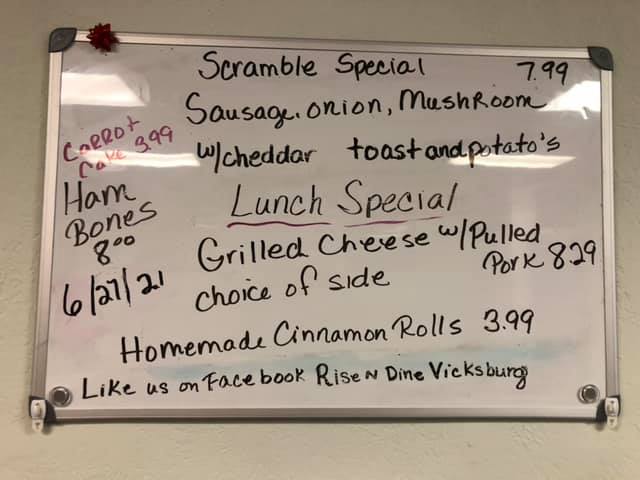 Scramble Special 7.99
Sausage, onion, MushRoom
w/cheddar toast and potato's
CARROt
Cake 3.99
Ham
Bones
8.00
6/27/21
Lunch Special
Grilled Cheese w/Pulled
Pork 8.29
choice of side
Homemade Cinnamon Rolls 3.99
Like us on Facebook Rise N Dine Vicksburg